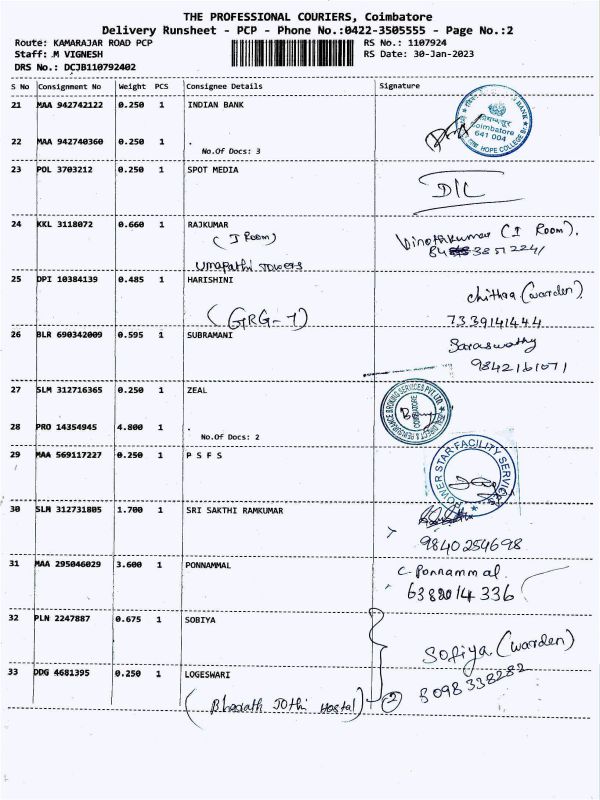 THE PROFESSIONAL COURIERS, Coimbatore
Delivery Runsheet - PCP - Phone No.:0422-3505555 - Page No.:2
Route: KAMARAJAR ROAD PCP RS No.: 1107924
Staff: .M VIGNESH RS Date: 30-Jan-2023
DRS No.: DCJB110792402
S No Consignment No Weight PCS Consignee Details Signature
21 MAA 942742122 0.250 1 INDIAN BANK
BANK
Coimbatore
641 004
HOPE COLLEGE
22 MAA 942740360 0.250 1 .
No.Of Docs: 3
23 POL 3703212 0.250 1 SPOT MEDIA
D/L
24 KKL 3118072 0.660 1 RAJKUMAR
(I Room)
Umapathi Towers
Vinothkumar (I Room).
25 DPI 10384139 0.485 1 HARISHINI
(GRG-7)
chithra (warden)
7339141444
26 BLR 690342009 0.595 1 SUBRAMANI
Saraswathy
9842161071
27 SLM 312716365 0.250 1 ZEAL
COIMBATORE
28 PRO 14354945 4.800 1 .
No.Of Docs: 2
29 MAA 569117227 0.250 1 P S F S
POWER STAR FACILITY SERVICES
30 SLM 312731805 1.700 1 SRI SAKTHI RAMKUMAR
9840254698
31 MAA 295046029 3.600 1 PONNAMMAL
C. Ponnammal.
32 PLN 2247887 0.675 1 SOBIYA
Sofiya (warden)
8098338282
33 DDG 4681395 0.250 1 LOGESWARI
(Bharath Jothi Hostel)
2